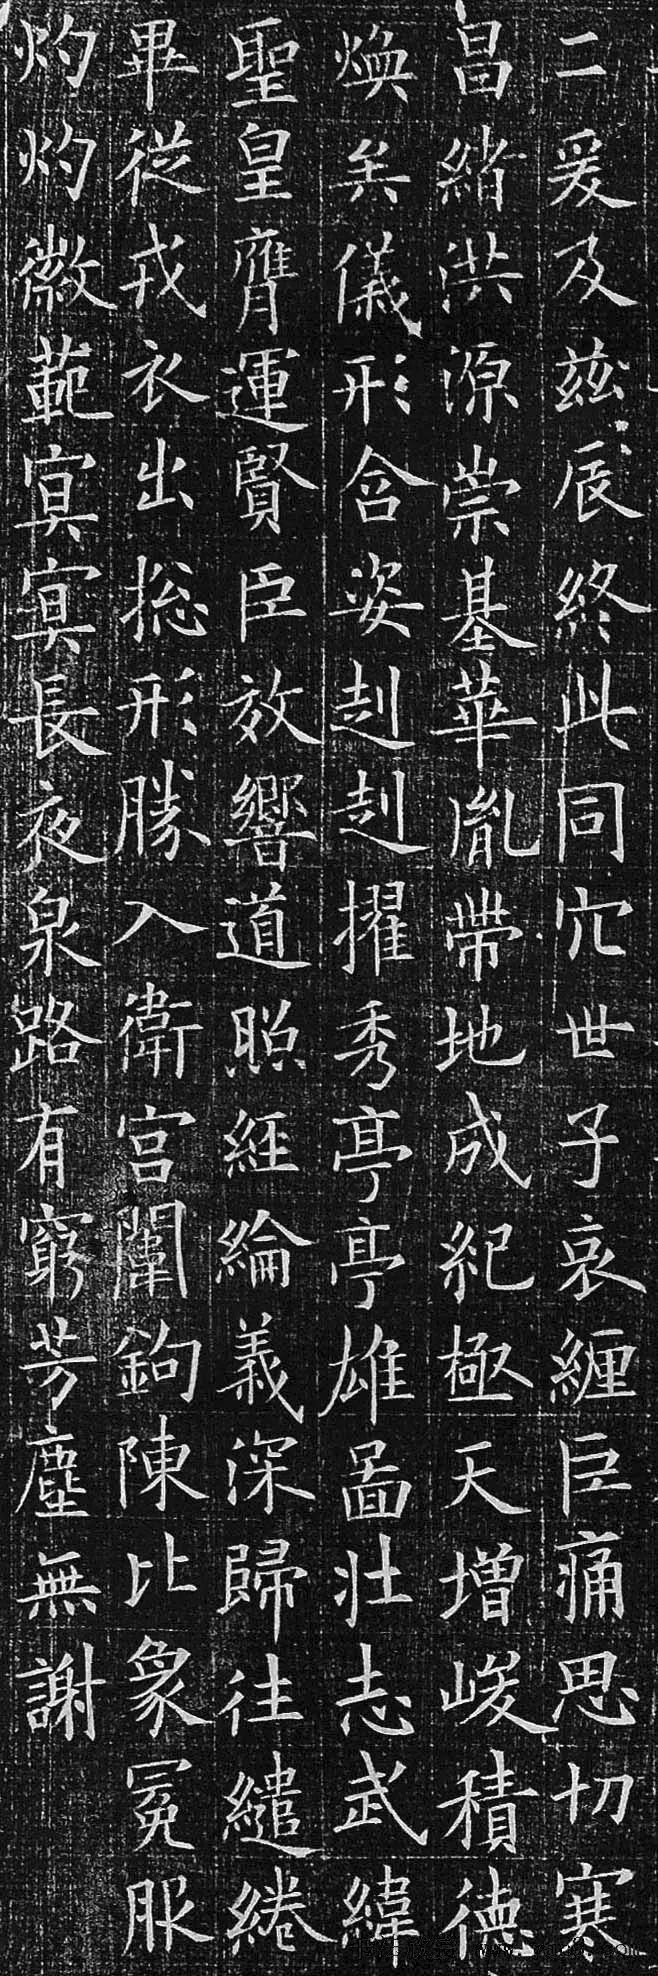 二爰及兹辰終此同穴世子哀纏臣痛思切寒
昌緒洪源崇基華胤帶地成紀極天增峻積德
焕矣儀形含姿赳赳擢秀亭亭雄啚壯志武緯
聖皇膺運賢臣效響道照經綸義深歸往繾綣
畢從戎衣出捴形勝入衛宫闈鉤陳比象冕服
灼灼徽範冥冥長夜泉路有窮芳塵無謝